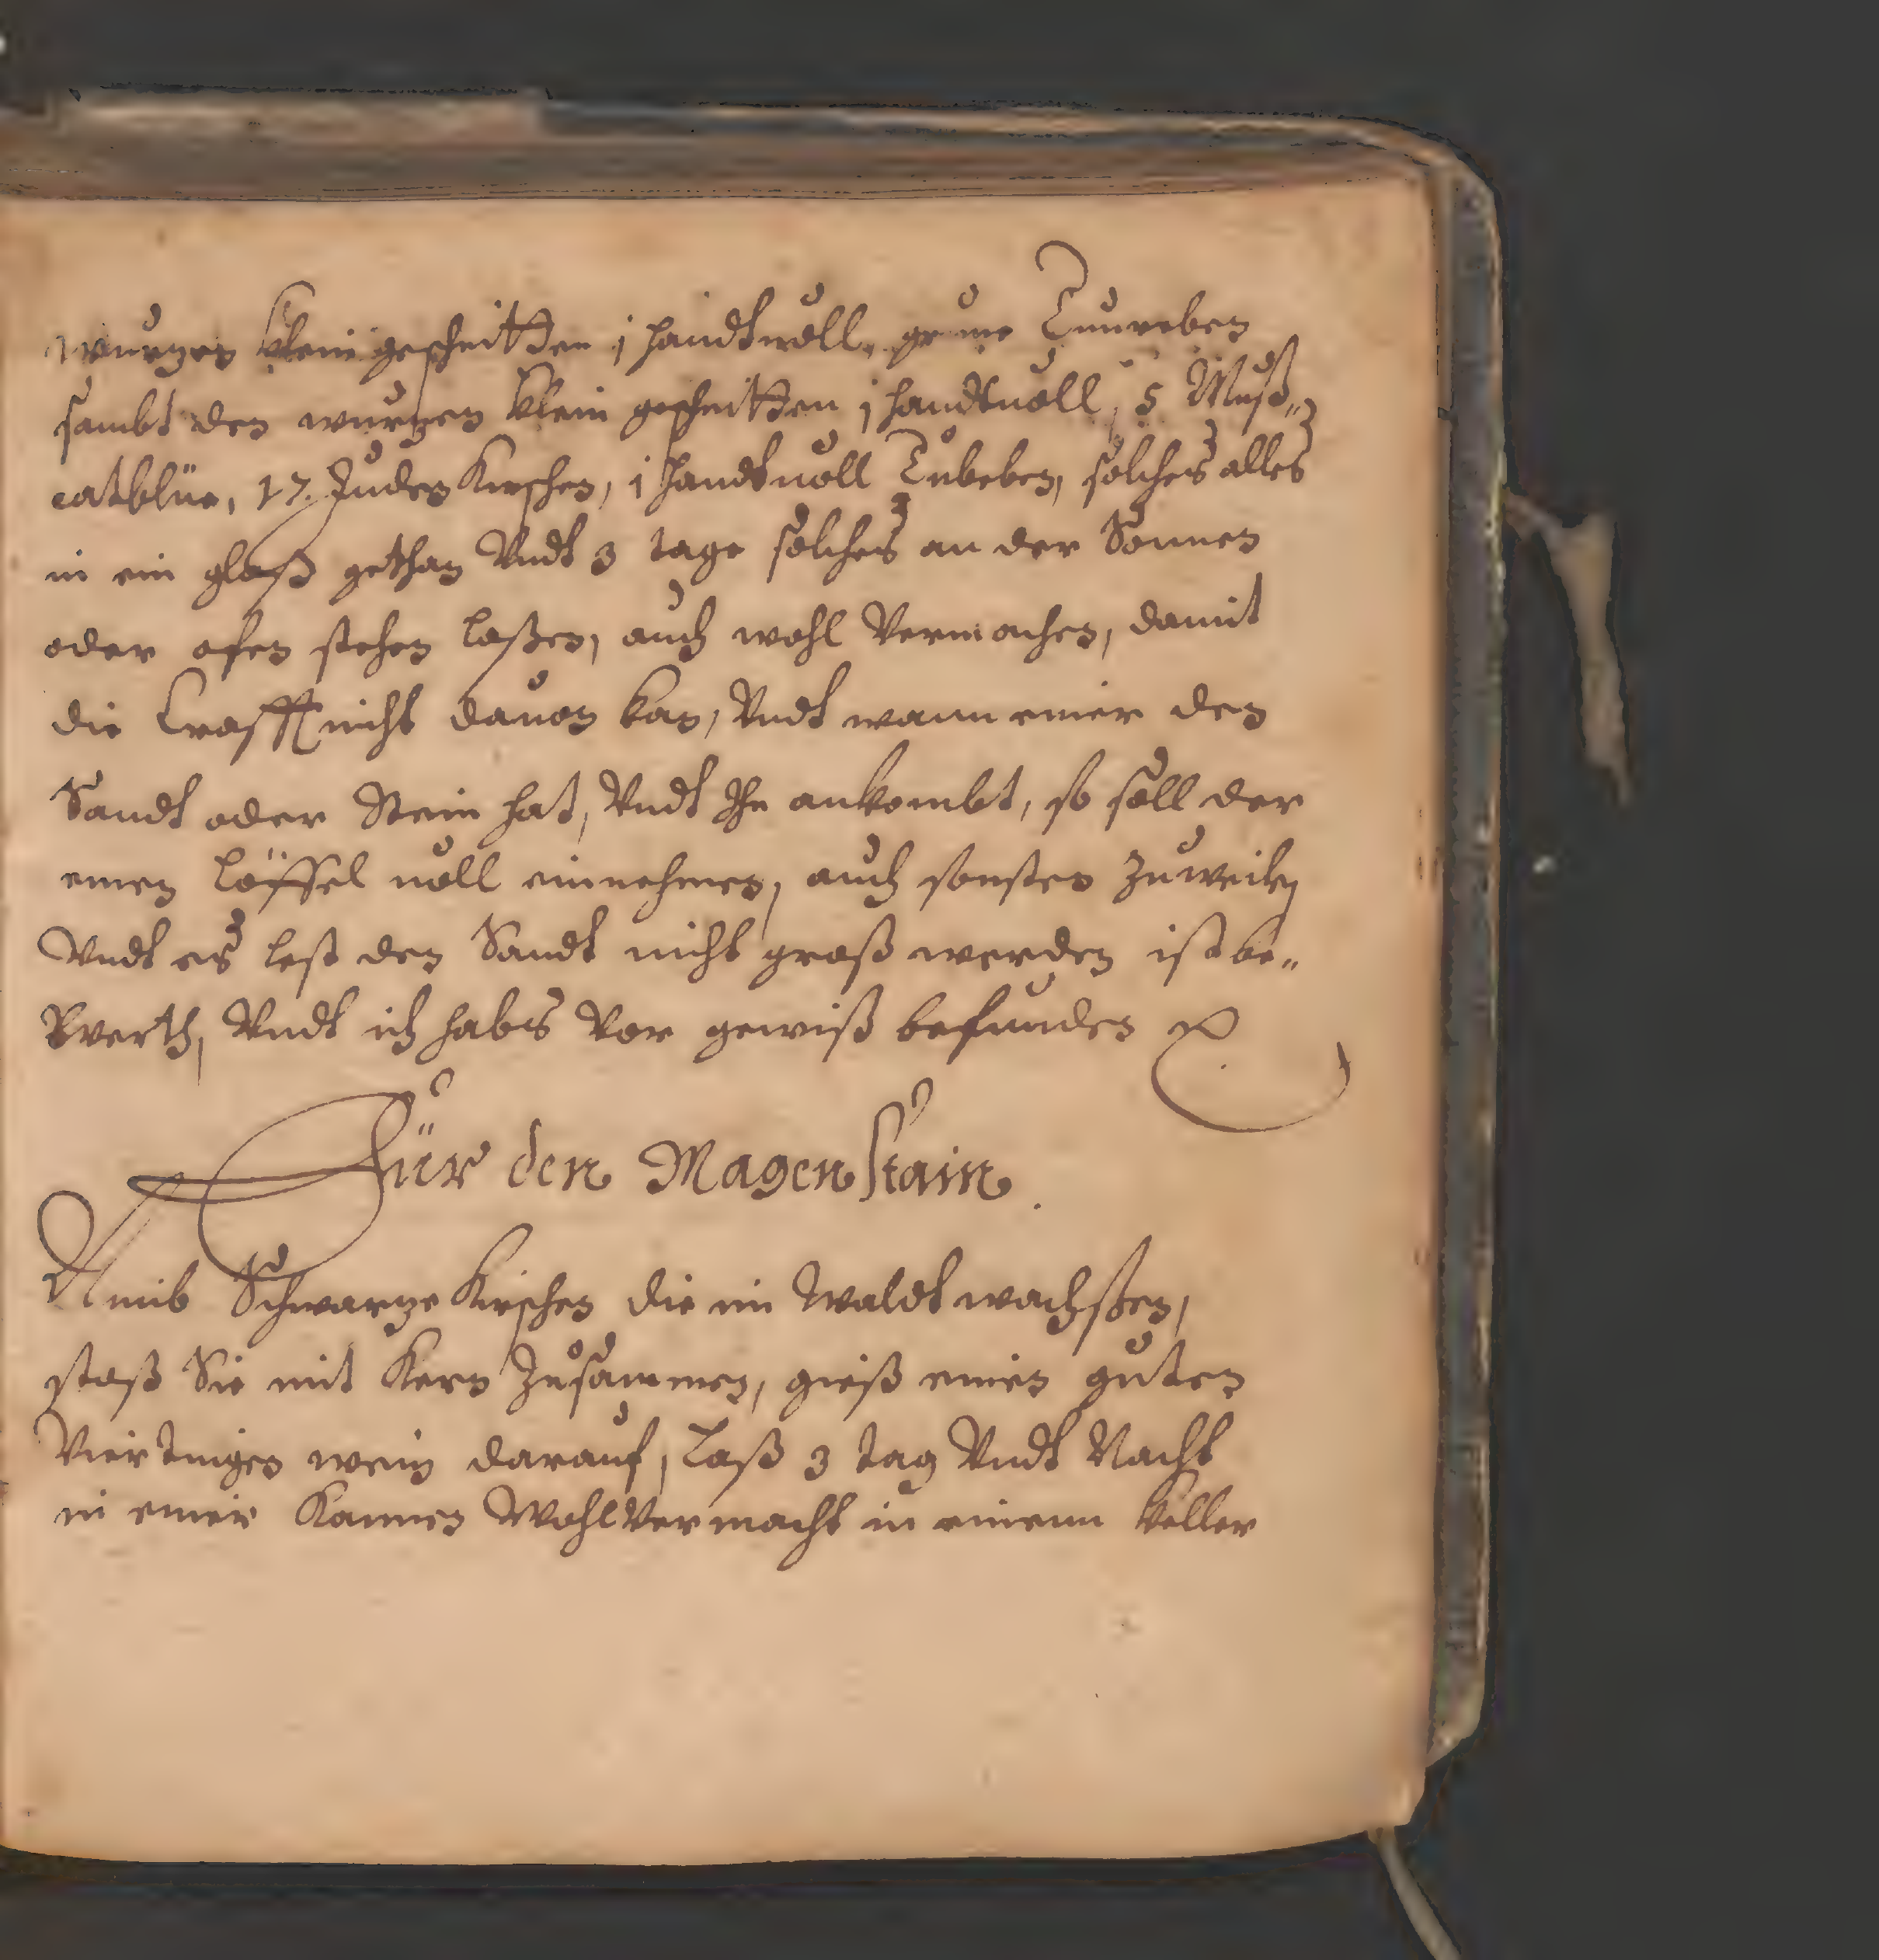 wurzen klein geschnitten j handtvoll, grüne Gunreben
sambt den wurzen klein geschnitten j handtvoll, 5 Muß„
catblüe, 17. Juden Kirschen, j handtvoll Cubeben, solches alles
in ein glaß gethan Vndt 3 tage solches an der Sonnen
oder ofen stehen laßen, auch wohl Vermachen, damit
die Crafft nicht dauon kan, Vndt wann einer den
Sandt oder Stein hat, Vndt Ihn ankombt, so soll der
einen Löffel voll einnehmen, auch sonsten zuweilen
Vndt es lest den Sandt nicht groß werden ist be„
Werth, Vndt ich habs Vor gewiß befunden
Für den Magen Stain.
Nimb Schwarze Kirschen die im Waldt wachßen,
stoß Sie mit Kern Zusammen, gieß einen guten
Viertnigen wein darauf, Laß 3 tag Vndt Nacht
in einer Kannen Wohl Vermacht in einem Keller